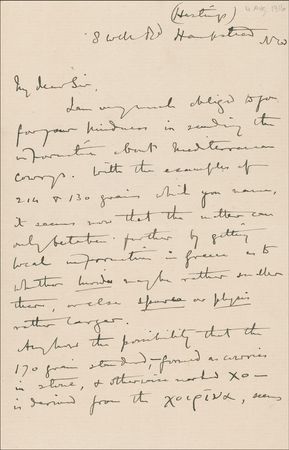 (Hastings) 4 Aug 1916
8 Well Rd Hampstead NW
My dear Sir,
I am very much obliged to you
for your kindness in sending the
information about Mediterranean
cowrys. With the examples of
214 & 130 grains which you name,
it seems now that the matter can
only be taken further by getting
local information in Greece as to
whether may be rather smaller
there, or else or
rather larger.
Anyhow the possibility that the
170 grain standard, formed as cowries
in stone, & otherwise marked XO —
is derived from the χοιρίνα, seems